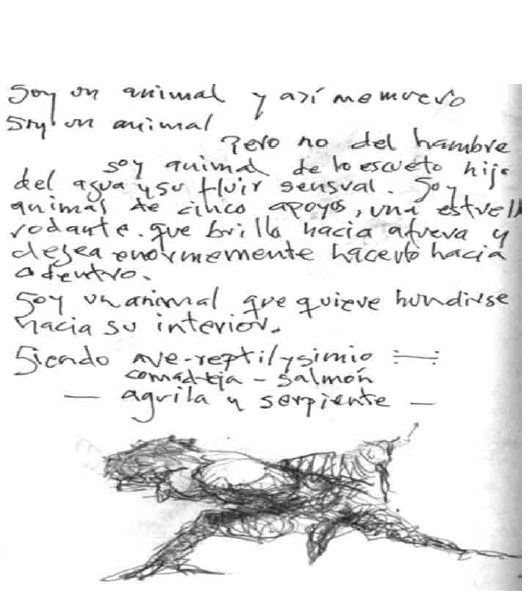 Soy un animal y así me muevo
Soy un animal
Pero no del hambre
soy animal de lo escueto hijo
del agua y su fluir sensual. Soy
animal de cinco apoyos, una estrella
rodante que brilla hacia afuera y
desea enormemente hacerlo hacia
adentro.
Soy un animal que quiere hundirse
hacia su interior.
Siendo ave-reptil y simio
comadreja - salmón
— aguila y serpiente —